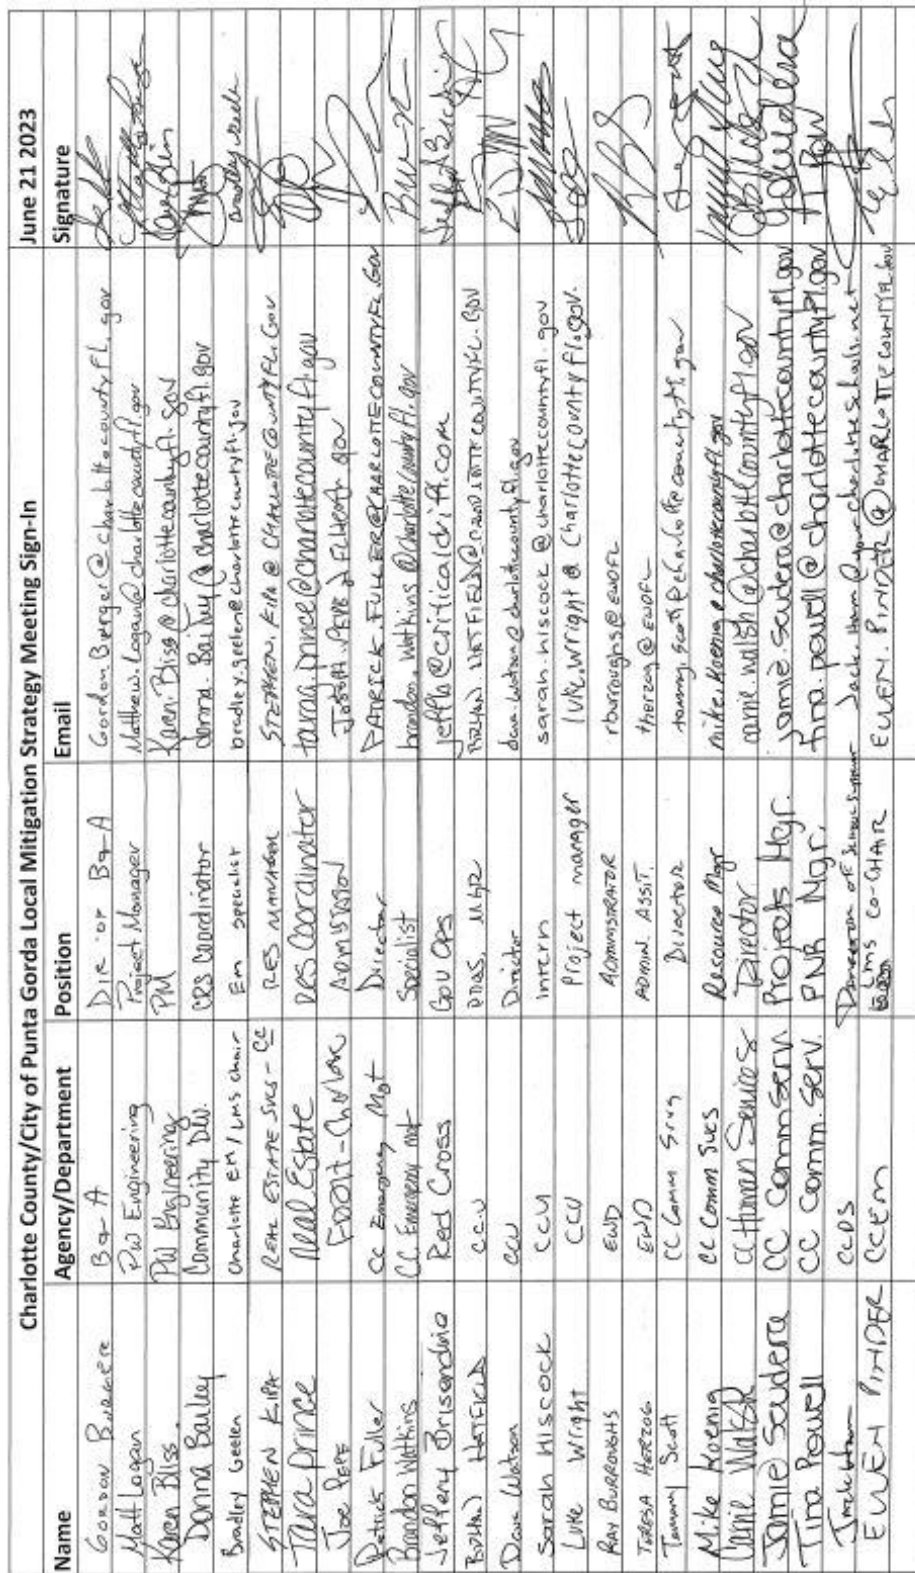 Charlotte County/City of Punta Gorda Local Mitigation Strategy Meeting Sign-In June 21 2023
Name Agency/Department Position Email Signature
Gordon B+A DIR OF B+A Gordon.Burger@charlottecountyfl.gov
Matt Logan PW Engineering Project Manager Matthew.Logan@charlottecountyfl.gov
Karen Bliss PW Engineering PM Karen.Bliss@charlottecountyfl.gov
Donna Bailey Community Dev. CRS Coordinator donna.Bailey@charlottecountyfl.gov
Bradley Geelen Charlotte EM/LMS chair Em specialist bradley.geelen@charlottecountyfl.gov
STEPHEN KIPA REAL ESTATE SVCS-CC RES MANAGER STEPHEN.KIPA@CHARLOTTECOUNTYFL.GOV
Tara Prince Real Estate RES Coordinator tara.prince@charlottecountyfl.gov
Joe PEPE
Patrick Fuller CC Emergency Mgt Director PATRICK.FULLER@CHARLOTTECOUNTYFL.GOV
Brandon Watkins CC Emergency Mgt Specialist brandon.Watkins@charlottecountyfl.gov
Jeffery Brisendine Red Cross GOV OPS @criticaldrift.com
HATFIELD C.C.U MGR
Dave Watson CCU Director dave.watson@charlottecountyfl.gov
Sarah Hiscock CCU intern sarah.hiscock@charlottecountyfl.gov
Luke Wright CCU Project manager luke.wright@charlottecountyfl.gov
RAY BURROUGHS EWD ADMINISTRATOR rburroughs@EWDFL
TERESA HERZOG EWD ADMIN. ASSIT. therzog@EWDFL
Tommy Scott CC Comm Srvs Director tommy.scott@charlottecountyfl.gov
Mike Koenig CC Comm Svcs Resource Mgr mike.koenig@charlottecountyfl.gov
Walsh CC Human Services Director
Jamie Scudera CC Comm Serv. Projects Mgr. jamie.scudera@charlottecountyfl.gov
Tina Powell CC Comm. Serv. PNR Mgr. tina.powell@charlottecountyfl.gov
Jack Ham CCPS Jack.Ham@yourcharlotteschools.net
EUWEN PINDER CCEM LMS CO-CHAIR EUWEN.PINDER@CHARLOTTECOUNTYFL.GOV